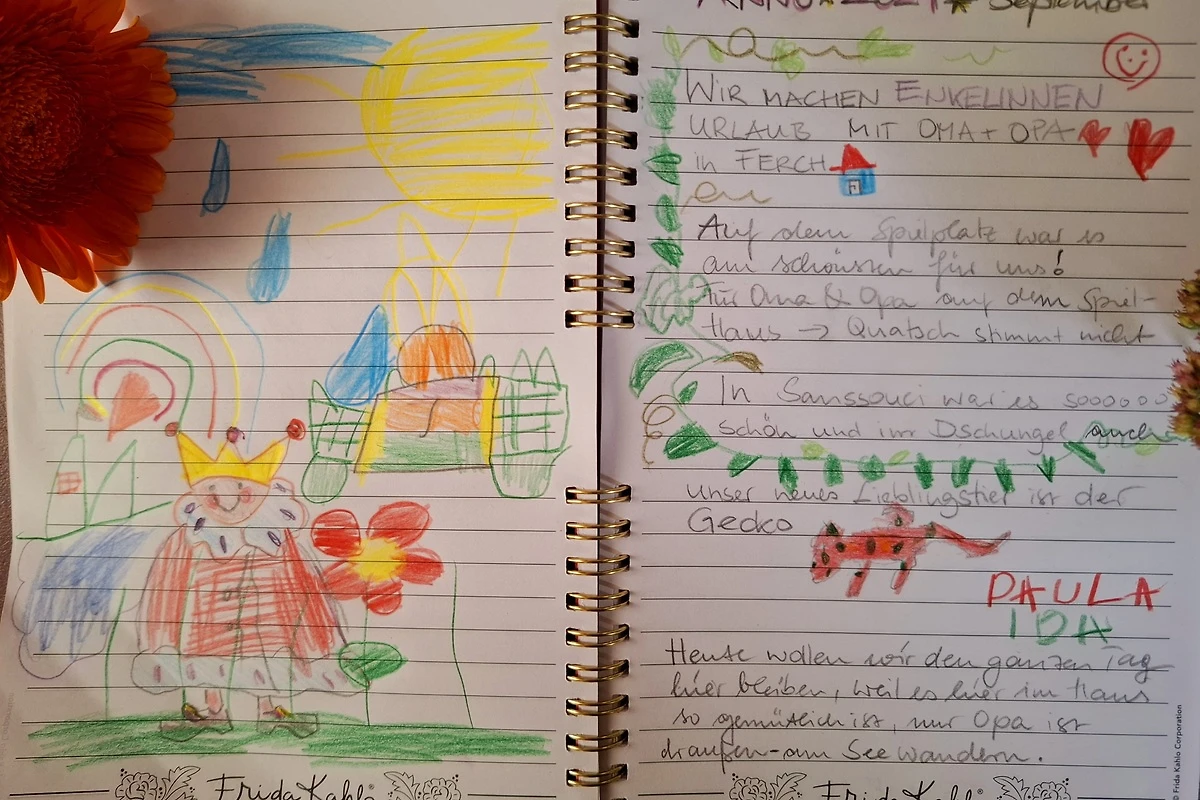 Frida Kahlo®
ANNO 2021 September
WIR MACHEN ENKELINNEN
URLAUB MIT OMA + OPA
in FERCH
Auf dem Spielplatz war es
am schönsten für uns!
Für Oma & Opa auf dem Spiel-
Haus → Quatsch stimmt nicht
In Sanssouci war es sooooooo
schön und im Dschungel auch
unser neues Lieblingstier ist der
Gecko
PAULA
IDA
Heute wollen wir den ganzen Tag
hier bleiben, weil es hier im Haus
so gemütlich ist, nur Opa ist
draußen - am See wandern.
Frida Kahlo®
© Frida Kahlo Corporation